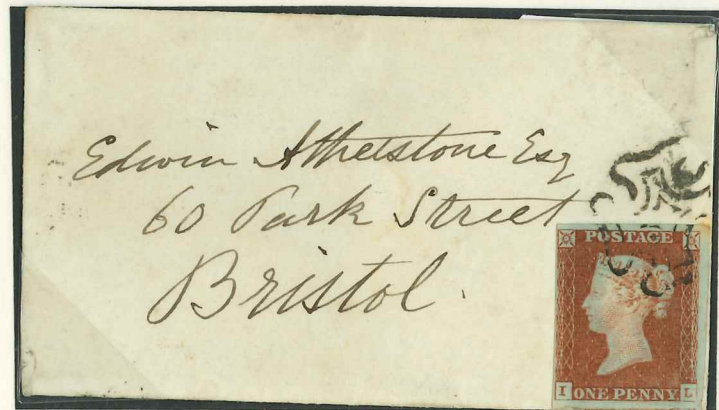 Edwin Athelstone Esq
60 Park Street
Bristol.
POSTAGE
I ONE PENNY L